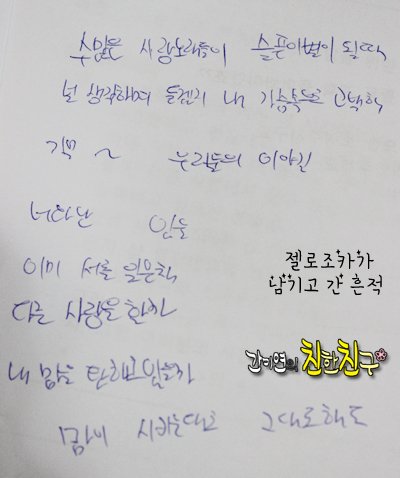 수많은 사랑노래들이 슬픈이별이 될때
널 생각하며 들겠지 내 가슴속으로 고백하
기억 ~ 우리들의 이야긴
너와난 있는
이미 서로 잃은척
다른 사랑을 한다
젤로조카가
남기고 간 흔적
간미연의 친한친구
내 맘을 있을까
맘이 시키는대로 그대로해도